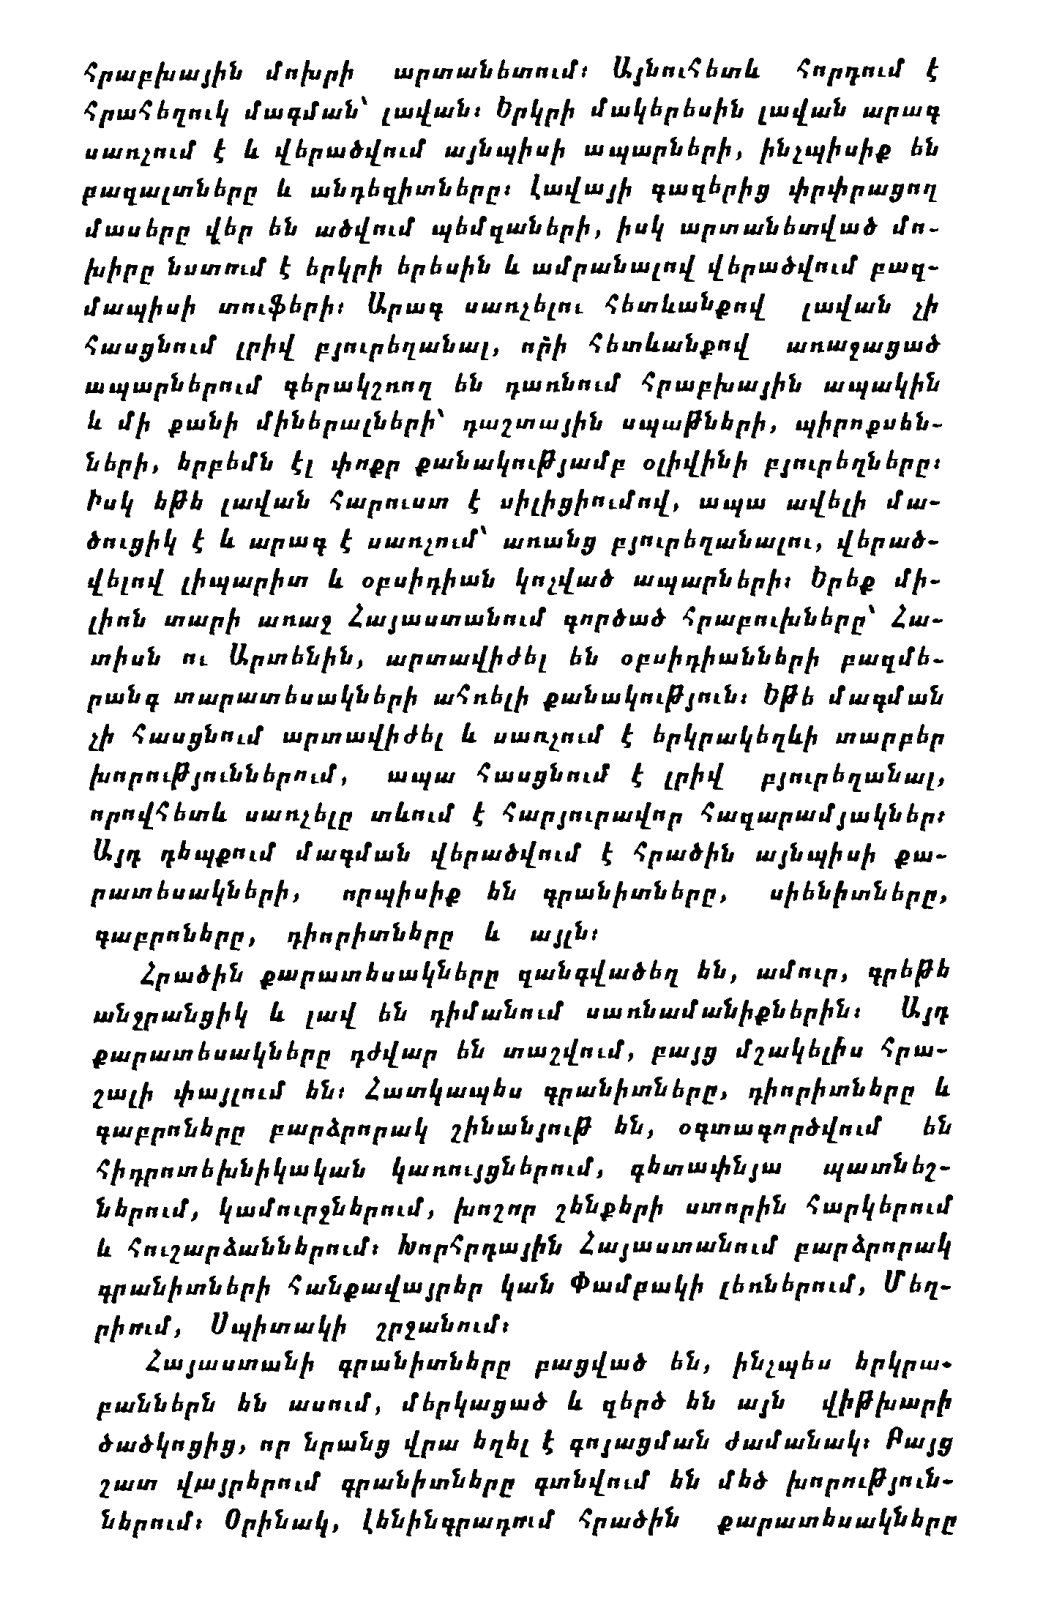 հրաբխային մոխրի արտանետում։ Այնուհետև հորդում է
հրահեղուկ մագման՝ լավան։ Երկրի մակերեսին լավան արագ
սառչում է և վերածվում այնպիսի ապարների, ինչպիսիք են
բազալտները և անդեզիտները։ Լավայի գազերից փրփրացող
մասերը վեր են ածվում պեմզաների, իսկ արտանետված մո-
խիրը նստում է երկրի երեսին և ամրանալով վերածվում բազ-
մապիսի տուֆերի։ Արագ սառչելու հետևանքով լավան չի
հասցնում լրիվ բյուրեղանալ, որի հետևանքով առաջացած
ապարներում գերակշռող են դառնում հրաբխային ապակին
և մի քանի միներալների՝ դաշտային սպաթների, պիրոքսեն-
ների, երբեմն էլ փոքր քանակությամբ օլիվինի բյուրեղները։
Իսկ եթե լավան հարուստ է սիլիցիումով, ապա ավելի մա-
ծուցիկ է և արագ է սառչում՝ առանց բյուրեղանալու, վերած-
վելով լիպարիտ և օբսիդիան կոչված ապարների։ Երեք մի-
լիոն տարի առաջ Հայաստանում գործած հրաբուխները՝ Հա-
տիսն ու Արտենին, արտավիժել են օբսիդիանների բազմե-
րանգ տարատեսակների ահռելի քանակություն։ Եթե մագման
չի հասցնում արտավիժել և սառչում է երկրակեղևի տարբեր
խորություններում, ապա հասցնում է լրիվ բյուրեղանալ,
որովհետև սառչելը տևում է հարյուրավոր հազարամյակներ։
Այդ դեպքում մագման վերածվում է հրածին այնպիսի քա-
րատեսակների, որպիսիք են գրանիտները, սիենիտները,
գաբրոները, դիորիտները և այլն։
Հրածին քարատեսակները զանգվածեղ են, ամուր, գրեթե
անջրանցիկ և լավ են դիմանում սառնամանիքներին։ Այդ
քարատեսակները դժվար են տաշվում, բայց մշակելիս հրա-
շալի փայլում են։ Հատկապես գրանիտները, դիորիտները և
գաբրոները բարձրորակ շինանյութ են, օգտագործվում են
հիդրոտեխնիկական կառույցներում, գետափնյա պատնեշ-
ներում, կամուրջներում, խոշոր շենքերի ստորին հարկերում
և հուշարձաններում։ Խորհրդային Հայաստանում բարձրորակ
գրանիտների հանքավայրեր կան Փամբակի լեռներում, Մեղ-
րիում, Սպիտակի շրջանում։
Հայաստանի գրանիտները բացված են, ինչպես երկրա-
բաններն են ասում, մերկացած և զերծ են այն վիթխարի
ծածկոցից, որ նրանց վրա եղել է գոյացման ժամանակ։ Բայց
շատ վայրերում գրանիտները գտնվում են մեծ խորություն-
ներում։ Օրինակ, Լենինգրադում հրածին քարատեսակները